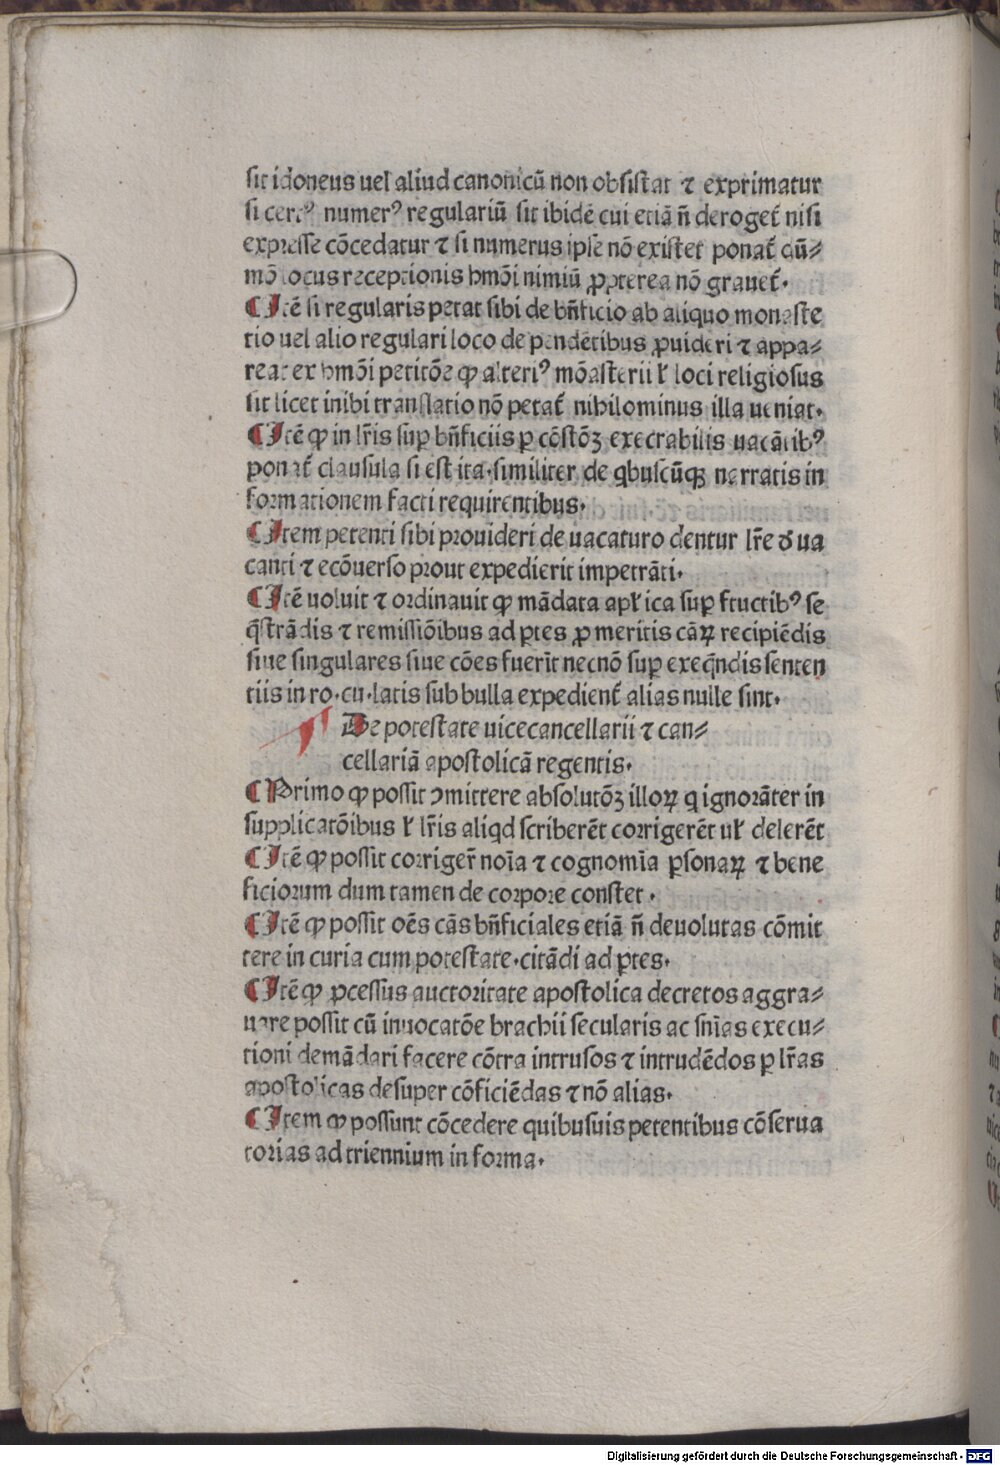 sit idoneus uel aliud canonicū non obsistat ⁊ exprimatur
si certꝰ numerꝰ regulariū sit ibidē cui etiā n̄ deroget᷑ nisi
expresse cōcedatur ⁊ si numerus ipse nō existet ponat᷑ dū⸗
mō locus receptionis hmōi nimiū ꝓpterea nō grauet᷑.
¶ Itē si regularis petat sibi de bn̄ficio ab aliquo monaste
rio uel alio regulari loco de pendētibus ꝓuideri ⁊ appa⸗
reat ex hmōi petitōe ꝙ alteriꝰ mōasterii ł loci religiosus
sit licet inibi translatio nō petat᷑ nihilominus illa ueniat.
¶ Itē ꝙ in lr̄is suꝑ bn̄ficiis ꝑ cōstōꝫ execrabilis uacātibꝰ
ponat᷑ clausula si est ita. similiter de qͥbuscūqꝫ narratis in
formationem facti requirentibus.
¶ Item petenti sibi prouideri de uacaturo dentur lr̄e d̄ ua
canti ⁊ ecōuerso prout expedierit impetrāti.
¶ Itē uoluit ⁊ ordinauit ꝙ mādata apł ica suꝑ fructibꝰ se
q̄strādis ⁊ remissiōibus ad ꝑtes ꝓ meritis cāꝝ recipiēdis
siue singulares siue cōes fuerīt necnō suꝑ exeq̄ndis senten
tiis in ro. cu. latis sub bulla expedient᷑ alias nulle sint.
De potestate uicecancellarii ⁊ can⸗
cellariā apostolicā regentis.
¶ Primo ꝙ possit ↄmittere absolutōꝫ illoꝝ q ignorāter in
supplicatōibus ł lr̄is aliqͥd scriberēt corrigerēt uł delerēt
¶ Itē ꝙ possit corriger̄ noīa ⁊ cognomīa ꝑsonaꝝ ⁊ bene
ficiorum dum tamen de corpore constet.
¶ Itē ꝙ possit oēs cās bn̄ficiales etiā n̄ deuolutas cōmit
tere in curia cum potestate. citādi ad ꝑtes.
¶ Itē ꝙ ꝓcessus auctoritate apostolica decretos aggra⸗
uare possit cū inuocatōe brachii secularis ac sn̄ias execu⸗
tioni demādari facere cōtra intrusos ⁊ intrudēdos ꝑ lr̄as
apostolicas desuper cōficiēdas ⁊ nō alias.
¶ Item ꝙ possunt cōcedere quibusuis petentibus cōserua
torias ad triennium in forma.
Digitalisierung gefördert durch die Deutsche Forschungsgemeinschaft - DFG